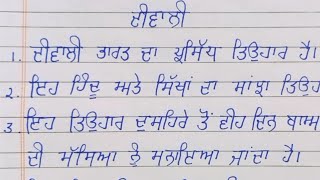 ਦੀਵਾਲੀ
1. ਦੀਵਾਲੀ ਭਾਰਤ ਦਾ ਪ੍ਰਸਿੱਧ ਤਿਉਹਾਰ ਹੈ।
2. ਇਹ ਹਿੰਦੂ ਅਤੇ ਸਿੱਖਾਂ ਦਾ ਸਾਂਝਾ ਤਿਉਹ
3. ਇਹ ਤਿਉਹਾਰ ਦੁਸਹਿਰੇ ਤੋਂ ਵੀਹ ਦਿਨ ਬਾਅਦ
ਦੀ ਮੱਸਿਆ ਨੂੰ ਮਨਾਇਆ ਜਾਂਦਾ ਹੈ।